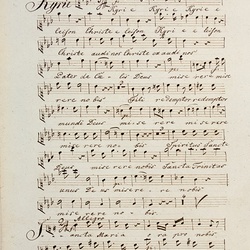 Kyrie Kyrie e Kyrie e e
leison Christe e leison Kyrie e e leison
Christe audi nos Christe exaudi nos
p
Pater de Cælis Deus miserere mise
rere nobis Fili redemptor redemptor
mundi Deus miserere miserere
miserere nobis Spiritus Sancte
Deus miserere nobis Sancta Trinitas
unus Deus miserere nobis
miserere nobis
Allegro
Sancta Maria ora pro nobis